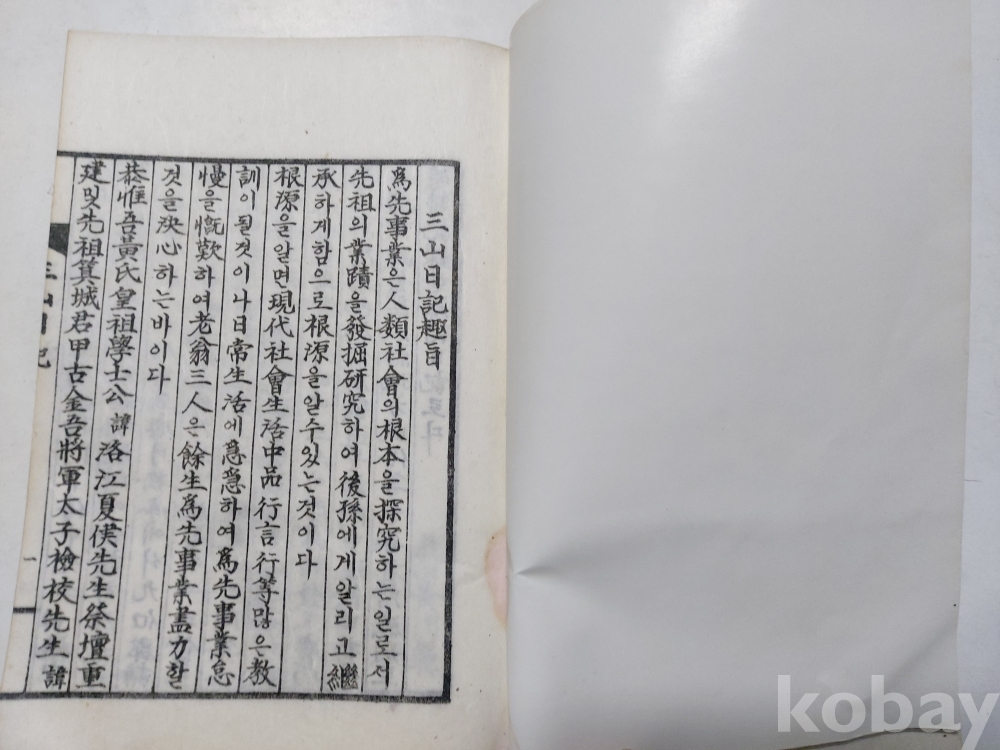 三山日記趣旨
爲先事業은人類社會의根本을探究하는일로서
先祖의業蹟을發掘硏究하여後孫에게알리고繼
承하게함으로根源을알수있는것이다
根源을알면現代社會生活中品行言行等많은敎
訓이될것이나日常生活에 하여爲先事業怠
慢을慨歎하여老翁三人은餘生爲先事業盡力할
것을決心하는바이다
恭惟吾黃氏皇祖學士公諱洛江夏侯先生祭壇重
建및先祖箕城君甲古金吾將軍太子檢校先生諱
三山日記
一
kobay